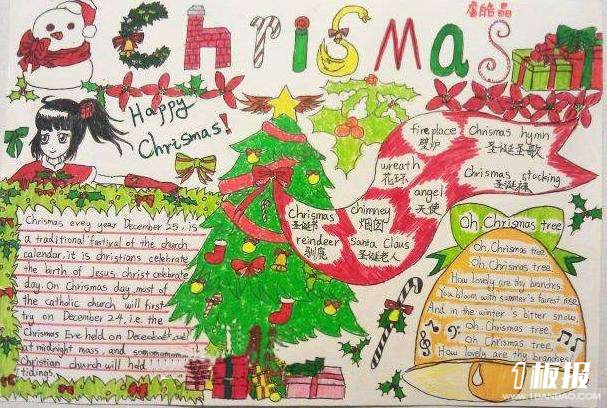 Chrismas
Happy
Chrismas!
fireplace
壁炉
Chrismas hymn
圣诞圣歌
wreath
花环
Chrismas stocking
圣诞袜
angel
天使
Chrismas
圣诞书
chimney
烟囱
reindeer
驯鹿
Santa Claus
圣诞老人
Chrismas, evey year December 25, is
a traditional fastival of the church
calendar, it is christians celebrate
the birth of Jesus christ celebrate
day. On Chrismas day, most of
the catholic church will first
try on December 24, i.e. the
Chrismas Eve held on
at midnight mass, and
Christian church will held
tidings.
Oh Chrismas tree
Oh, Chrismas tree.
Oh, Chrismas tree.
How lovely are thy branches!
You bloom with summer's fairest rise
And in the winter's bitter snow,
Oh, Chrismas tree.
Oh, Chrismas tree.
How lovely are thy branches!
1板报
WWW.1BANBAO.COM